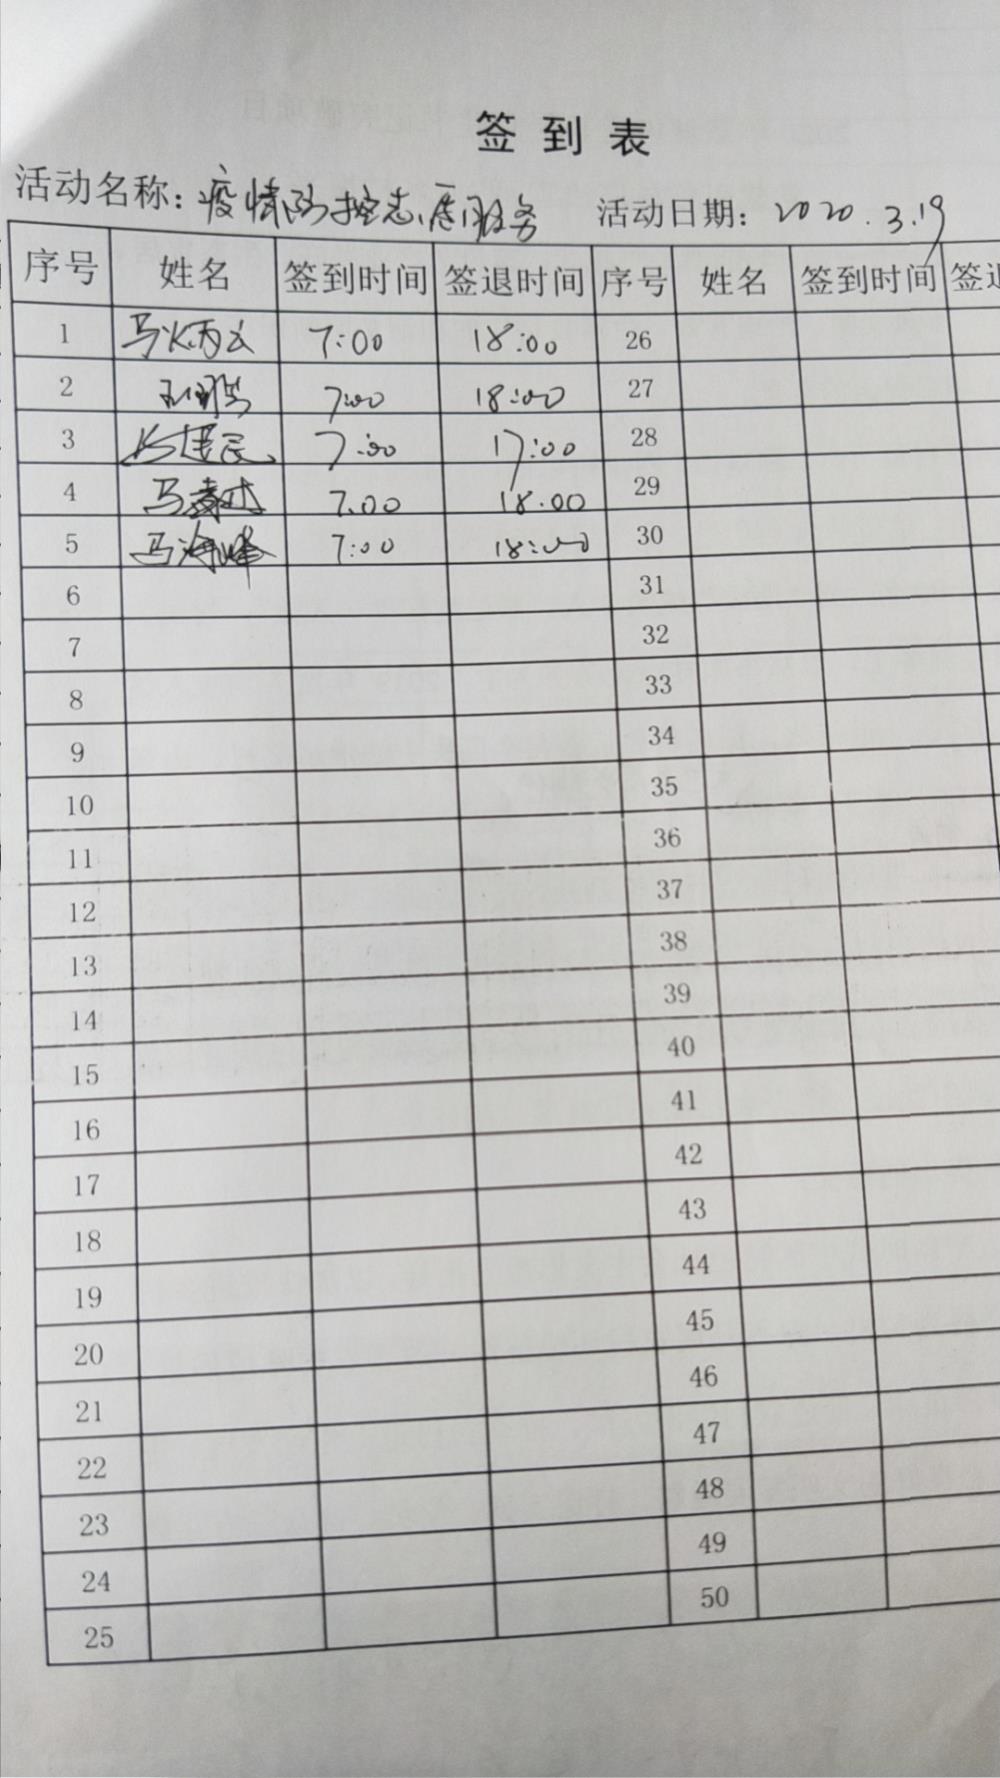 签到表
活动名称：疫情防控志愿服务 活动日期：2020.3.19
序号 姓名 签到时间 签退时间 序号 姓名 签到时间 签退
1 7:00 18:00 26
2 7:00 18:00 27
3 7:00 17:00 28
4 马 7.00 18.00 29
5 马海峰 7:00 18:00 30
6 31
7 32
8 33
9 34
10 35
11 36
12 37
13 38
14 39
15 40
16 41
17 42
18 43
19 44
20 45
21 46
22 47
23 48
24 49
25 50